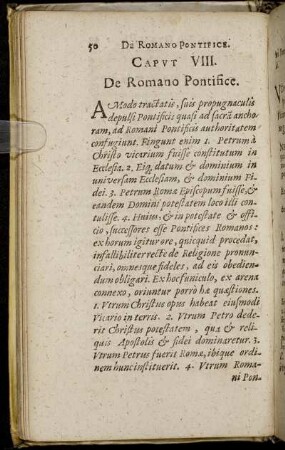 50 DE ROMANO PONTIFICE.
CAPVT VIII.
De Romano Pontifice.
A Modo tractatis, suis propugnaculis
depulsi Pontificii quasi ad sacrā ancho-
ram, ad Romani Pontificis authoritatem
confugiunt. Fingunt enim 1. Petrum à
Christo vicarium fuisse constitutum in
Ecclesia. 2. Eiq; datum & dominium in
universam Ecclesiam, & dominium Fi-
dei. 3. Petrum Romæ Episcopum fuisse, &
eandem Domini potestatem loco illi con-
tulisse. 4. Huius, & in potestate & offi-
cio, successores esse Pontifices Romanos:
ex horum igitur ore, quicquid procedat,
infallibiliter recte de Religione pronun-
ciari, omnesque fideles, ad eis obedien-
dum obligari. Ex hoc funiculo, ex arena
connexo, oriuntur porrò hæ quæstiones.
1. Vtrum Christus opus habeat eiusmodi
Vicario in terris. 2. Vtrum Petro dede-
rit Christus potestatem, qua & reli-
quis Apostolis & fidei dominaretur. 3.
Vtrum Petrus fuerit Romæ, ibique ordi-
nem hunc instituerit. 4. Vtrum Roma-
ni Pon-